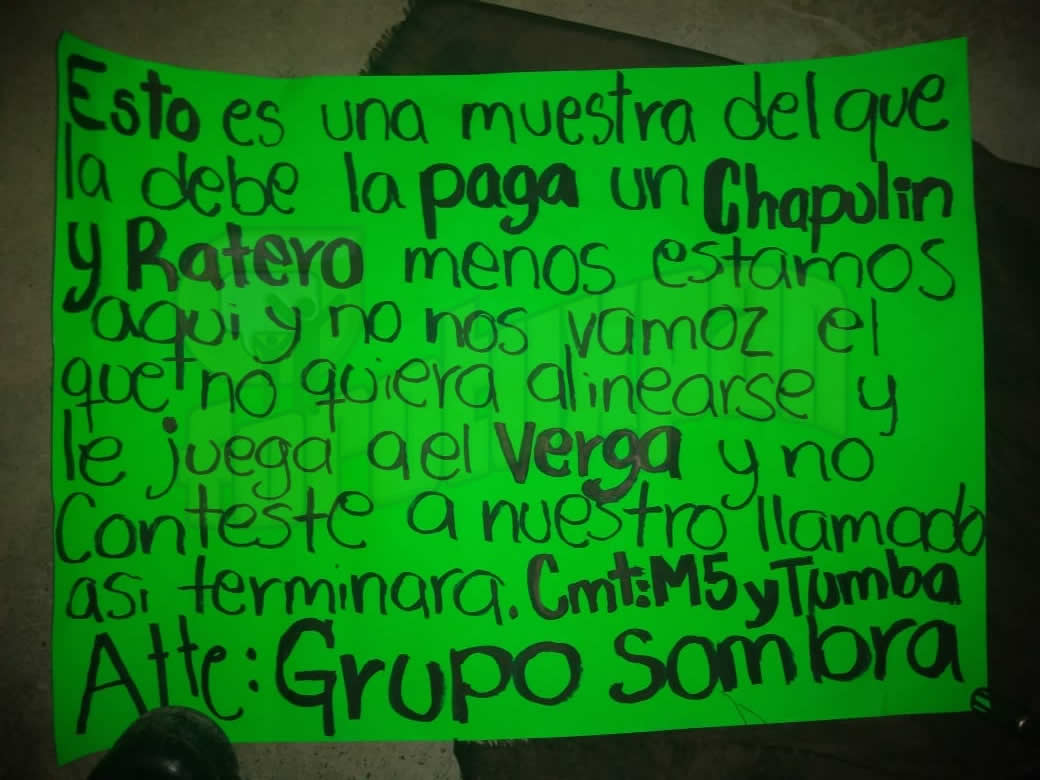 Esto es una muestra del que
la debe la paga un Chapulin
y Ratero menos estamos
aqui y no nos vamoz el
que no quiera alinearse y
le juega a el verga y no
Conteste a nuestro llamado
asi terminara. Cmt:M5 y Tumba
Atte: Grupo Sombra